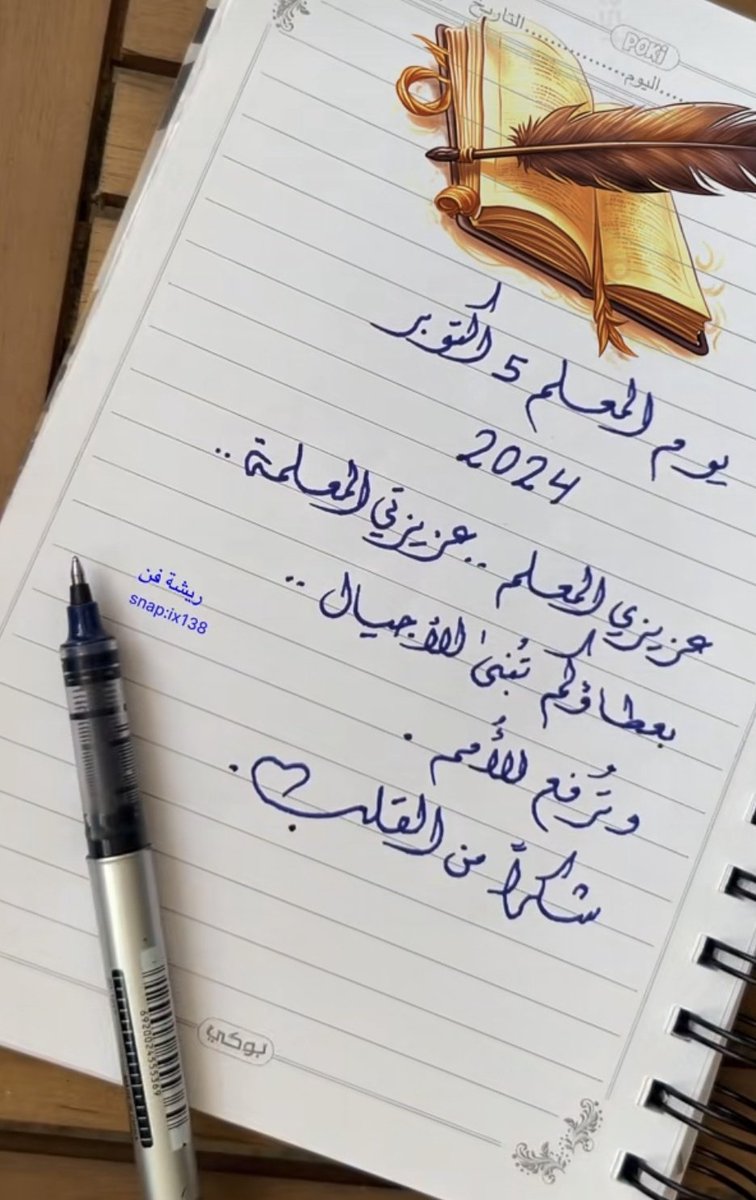 POKi
التاريخ
اليوم
يوم المعلم 5 أكتوبر
2024
عزيزي المعلم .. عزيزتي المعلمة ..
بعطاؤكم تُبنىٰ الأجيال ..
وتُرفع الأُمم .
شكراً من القلب .
ريشة فن
snap:ix138
6920024555369
بوكي